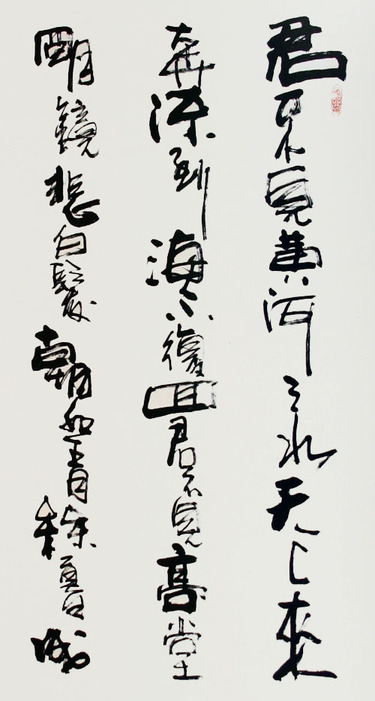 君不見黃河之水天上來
奔流到海不復回君不見高堂
明鏡悲白髮朝如青絲暮成